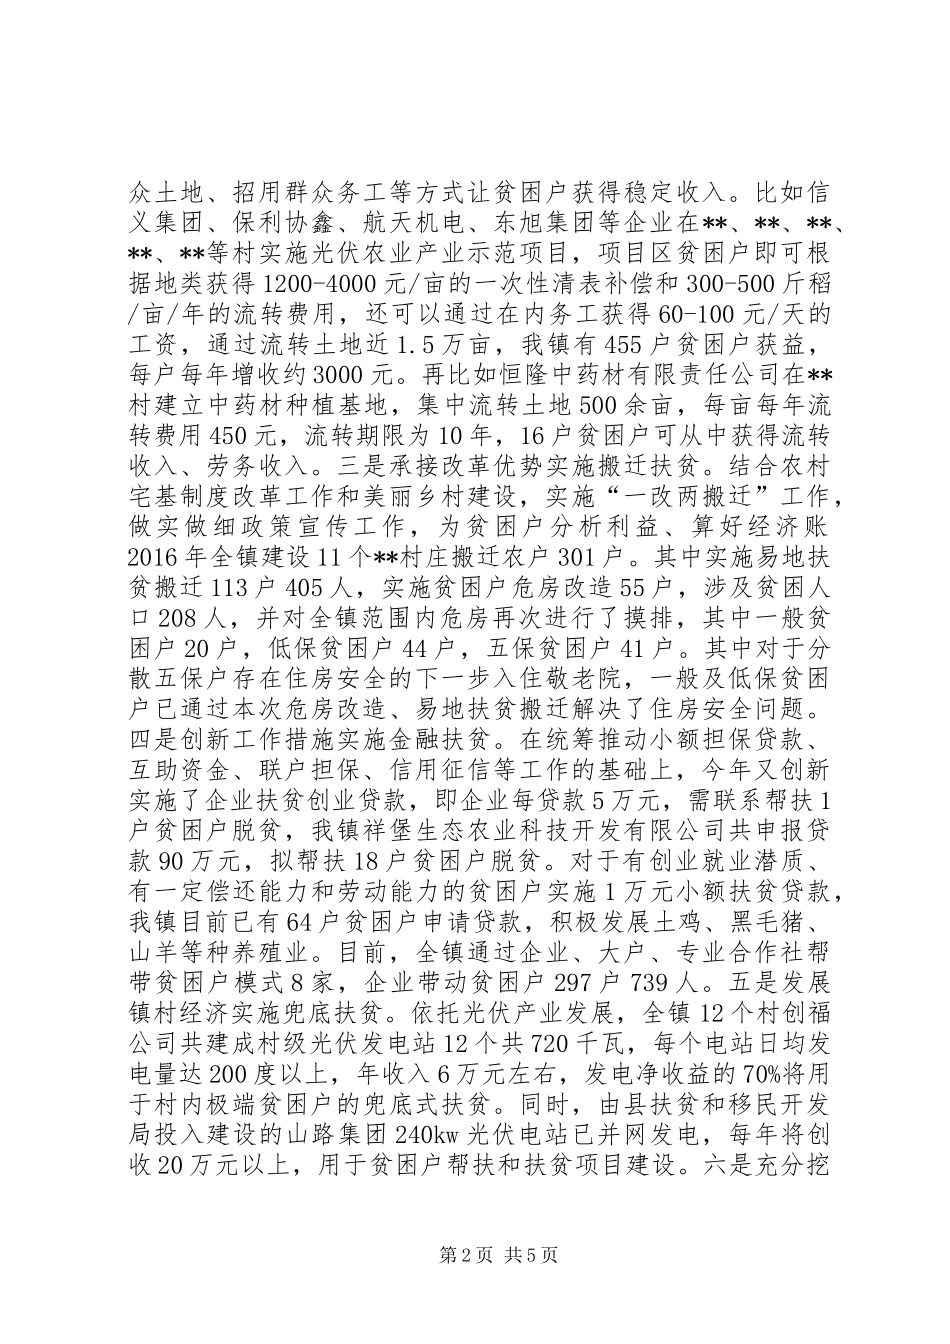 众土地、招用群众务工等方式让贫困户获得稳定收入。比如信
义集团、保利协鑫、航天机电、东旭集团等企业在**、**、**、
**、**等村实施光伏农业产业示范项目，项目区贫困户即可根
据地类获得 1200-4000 元/亩的一次性清表补偿和 300-500 斤稻
/亩/年的流转费用，还可以通过在内务工获得 60-100 元/天的
工资，通过流转土地近 1.5 万亩，我镇有 455 户贫困户获益，
每户每年增收约 3000 元。再比如恒隆中药材有限责任公司在**
村建立中药材种植基地，集中流转土地 500 余亩，每亩每年流
转费用 450 元，流转期限为 10 年，16 户贫困户可从中获得流转
收入、劳务收入。三是承接改革优势实施搬迁扶贫。结合农村
宅基制度改革工作和美丽乡村建设，实施“一改两搬迁”工作，
做实做细政策宣传工作，为贫困户分析利益、算好经济账
2016 年全镇建设 11 个**村庄搬迁农户 301 户。其中实施易地扶
贫搬迁 113 户 405 人，实施贫困户危房改造 55 户，涉及贫困人
口 208 人，并对全镇范围内危房再次进行了摸排，其中一般贫
困户 20 户，低保贫困户 44 户，五保贫困户 41 户。其中对于分
散五保户存在住房安全的下一步入住敬老院，一般及低保贫困
户已通过本次危房改造、易地扶贫搬迁解决了住房安全问题。
四是创新工作措施实施金融扶贫。在统筹推动小额担保贷款、
互助资金、联户担保、信用征信等工作的基础上，今年又创新
实施了企业扶贫创业贷款，即企业每贷款 5 万元，需联系帮扶 1
户贫困户脱贫，我镇祥堡生态农业科技开发有限公司共申报贷
款 90 万元，拟帮扶 18 户贫困户脱贫。对于有创业就业潜质、
有一定偿还能力和劳动能力的贫困户实施 1 万元小额扶贫贷款，
我镇目前已有 64 户贫困户申请贷款，积极发展土鸡、黑毛猪、
山羊等种养殖业。目前，全镇通过企业、大户、专业合作社帮
带贫困户模式 8 家，企业带动贫困户 297 户 739 人。五是发展
镇村经济实施兜底扶贫。依托光伏产业发展，全镇 12 个村创福
公司共建成村级光伏发电站 12 个共 720 千瓦，每个电站日均发
电量达 200 度以上，年收入 6 万元左右，发电净收益的 70%将用
于村内极端贫困户的兜底式扶贫。同时，由县扶贫和移民开发
局投入建设的山路集团 240kw 光伏电站已并网发电，每年将创
收 20 万元以上，用于贫困户帮扶和扶贫项目建设。六是充分挖
第 2 页 共 5 页